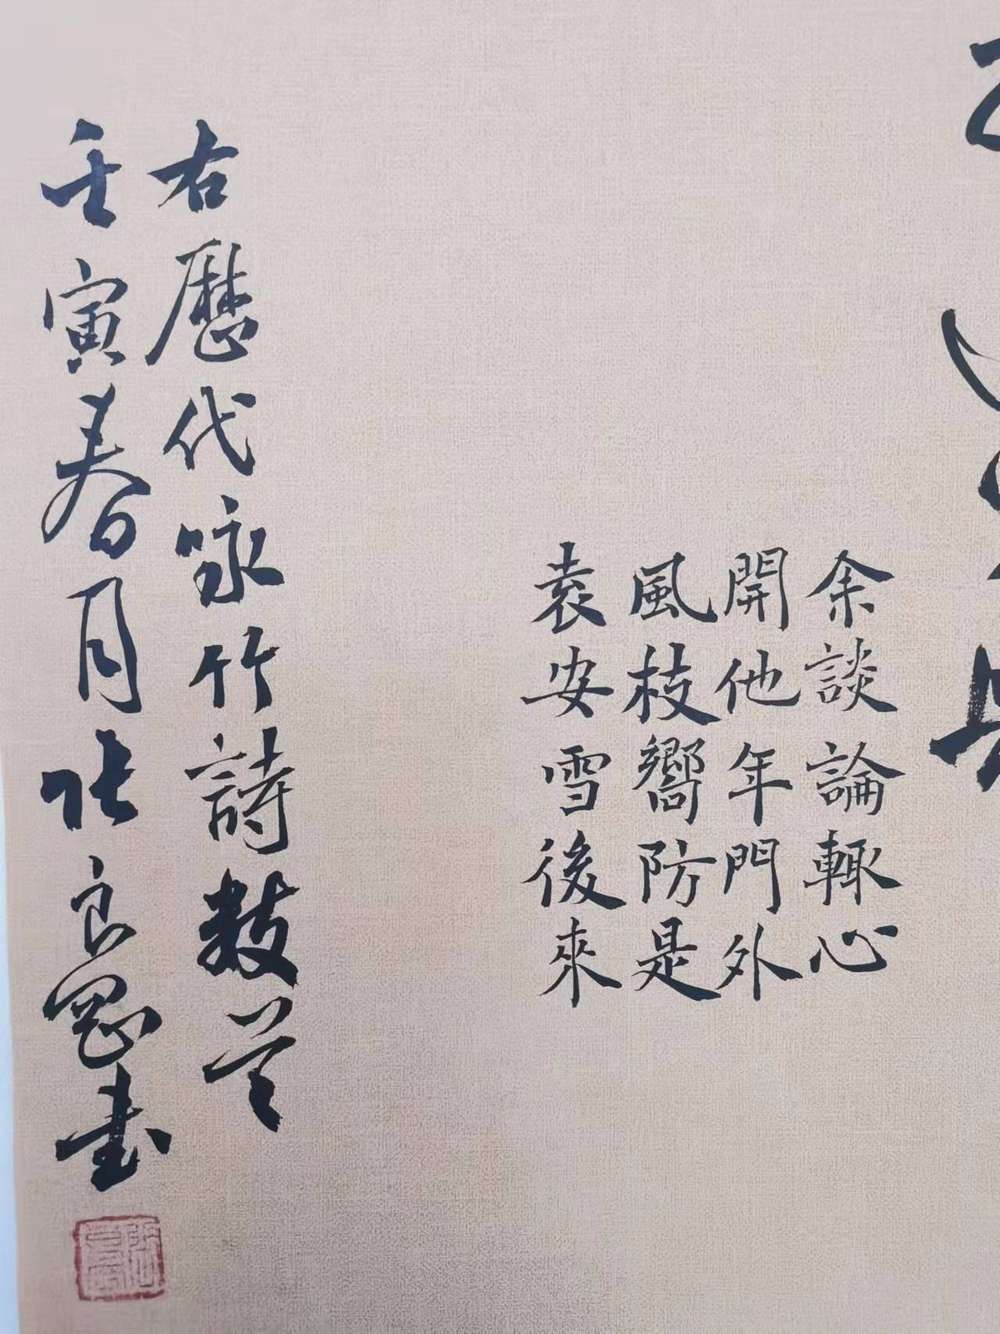 余談論輒心
開他年門外
風枝嚮防是
袁安雪後來
右歷代咏竹詩數首
壬寅春月張良罡書